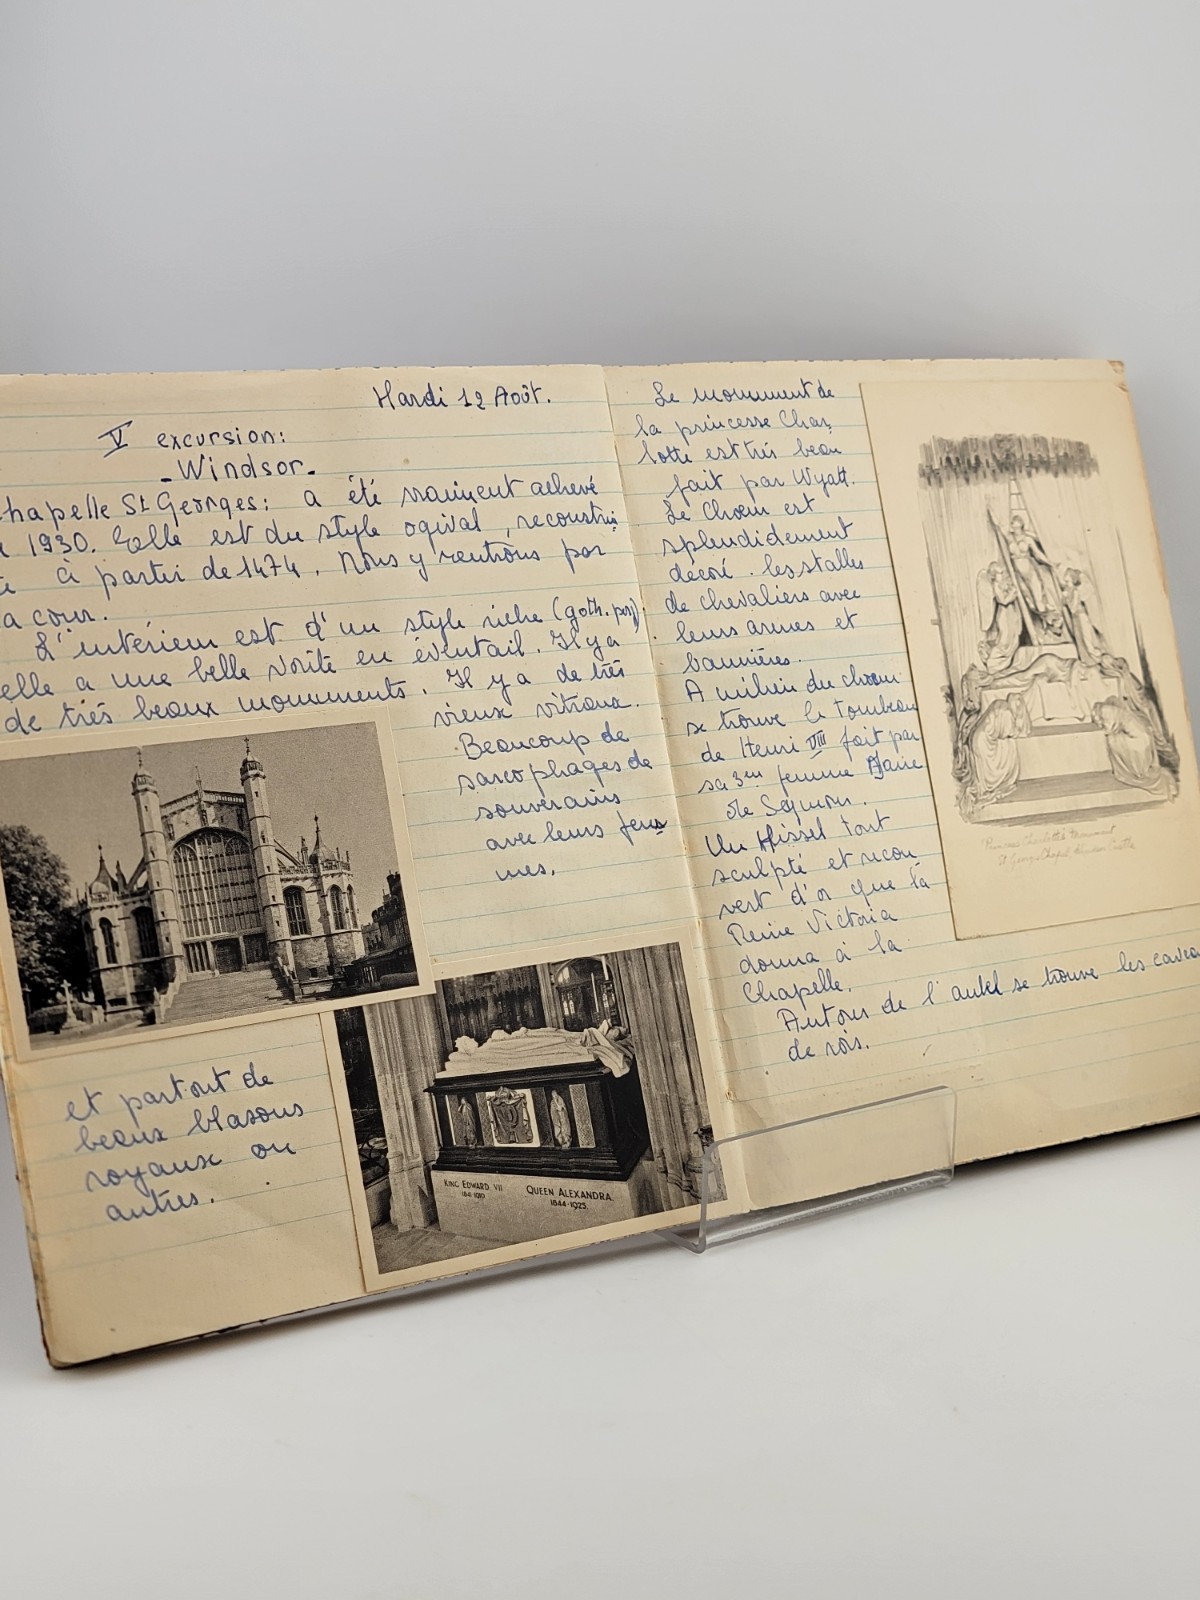 Mardi 12 Août.
V excursion:
- Windsor -
chapelle St Georges: a été vraiment achevé
1930. Elle est du style ogival, reconstrui
te à partir de 1474. Nous y rentrons par
la cour.
L'intérieur est d'un style riche (goth. per).
elle a une belle voûte en éventail. Il y a
de très beaux monuments. Il y a de très
vieux vitraux.
Beaucoup de
sarcophages de
souverains
avec leurs fem
mes.
et partout de
beaux blasons
royaux ou
autres.
KING EDWARD VII
1841-1910
QUEEN ALEXANDRA
1844-1925
Le monument de
la princesse Char
lotte est très beau
fait par Wyatt.
Le Chœur est
splendidement
décoré. les stalles
de chevaliers avec
leurs armes et
bannières.
A milieu du chœur
se trouve le tombeau
de Henri VIII fait par
sa 3em femme Jaine
de Seymour.
Un Missel tout
sculpté et recou
vert d'or que la
Reine Victoria
donna à la
Chapelle.
Autour de l'autel se trouve les caveau
de rois.
Princess Charlotte's Monument
St George's Chapel, Windsor Castle